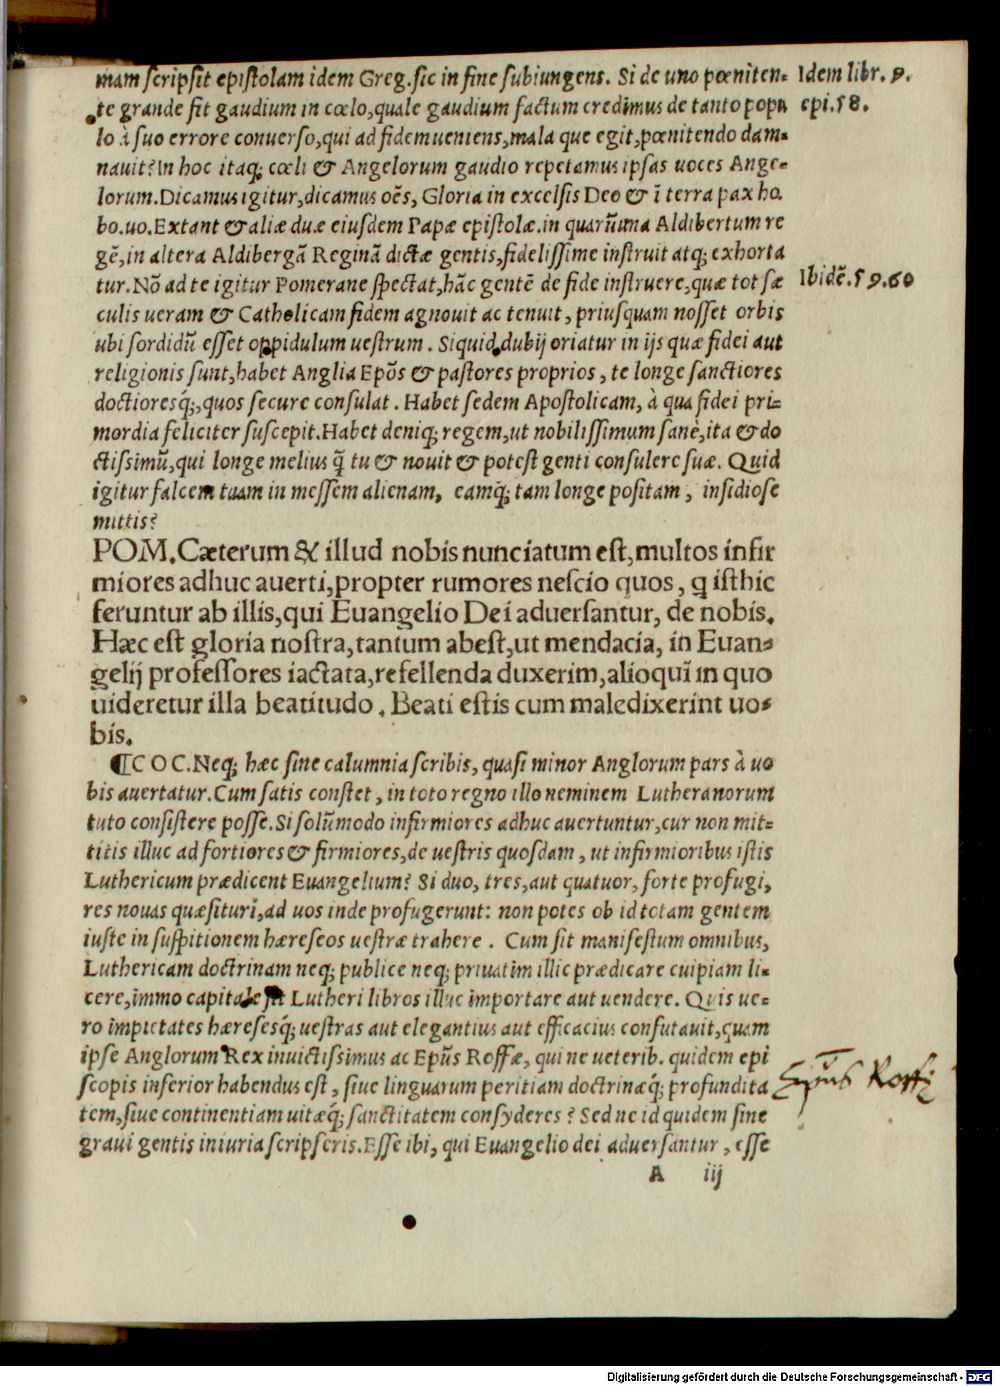 mam scripsit epistolam idem Greg. sic in fine subiungens. Si de uno pœniten-
te grande fit gaudium in cœlo, quale gaudium factum credimus de tanto popu
lo à suo errore conuerso, qui ad fidem ueniens, mala que egit, pœnitendo dam-
nauit? In hoc itaq; cœli & Angelorum gaudio repetamus ipsas uoces Ange-
lorum. Dicamus igitur, dicamus oēs, Gloria in excelsis Deo & ī terra pax ho.
bo. uo. Extant & aliæ duæ eiusdem Papæ epistolæ. in quarū una Aldibertum re
gē, in altera Aldibergā Reginā dictæ gentis, fidelissime instruit atq; exhorta
tur. Nō ad te igitur Pomerane spectat, hāc gentē de fide instruere, quæ tot sæ
culis ueram & Catholicam fidem agnouit ac tenuit, priusquam nosset orbis
ubi sordidū esset oppidulum uestrum. Siquid dubij oriatur in ijs quæ fidei aut
religionis sunt, habet Anglia Epōs & pastores proprios, te longe sanctiores
doctioresq́;, quos secure consulat. Habet sedem Apostolicam, à qua fidei pri-
mordia feliciter suscepit. Habet deniq; regem, ut nobilissimum sanè, ita & do
ctissimū, qui longe melius q̄ tu & nouit & potest genti consulere suæ. Quid
igitur falcem tuam in messem alienam, eamq́; tam longe positam, insidiose
mittis?
POM. Cæterum & illud nobis nunciatum est, multos infir
miores adhuc auerti, propter rumores nescio quos, q isthic
feruntur ab illis, qui Euangelio Dei aduersantur, de nobis.
Hæc est gloria nostra, tantum abest, ut mendacia, in Euan-
gelij professores iactata, refellenda duxerim, alioquī in quo
uideretur illa beatitudo. Beati estis cum maledixerint uo-
bis.
¶COC. Neq; hæc sine calumnia scribis, quasi minor Anglorum pars à uo
bis auertatur. Cum satis constet, in toto regno illo neminem Lutheranorum
tuto consistere posse. Si solūmodo infirmiores adhuc auertuntur, cur non mit-
titis illuc ad fortiores & firmiores, de uestris quosdam, ut infirmioribus istis
Luthericum prædicent Euangelium? Si duo, tres, aut quatuor, forte profugi,
res nouas quæsituri, ad uos inde profugerunt: non potes ob id totam gentem
iuste in suspitionem hæreseos uestræ trahere. Cum sit manifestum omnibus,
Luthericam doctrinam neq; publice neq; priuatim illic prædicare cuipiam li-
cere, immo capitale sit Lutheri libros illuc importare aut uendere. Quis ue-
ro impietates hæresesq́; uestras aut elegantius aut efficacius confutauit, quam
ipse Anglorum Rex inuictissimus ac Epūs Roffæ, qui ne ueterib. quidem epi
scopis inferior habendus est, siue linguarum peritiam doctrinæq́; profundita
tem, siue continentiam uitæq́; sanctitatem consyderes? Sed ne id quidem sine
graui gentis iniuria scripseris. Esse ibi, qui Euangelio dei aduersantur, esse
A iij
Idem libr. 9.
epi. 58.
Ibidē. 59. 60
Epūs Roff
Digitalisierung gefördert durch die Deutsche Forschungsgemeinschaft - DFG